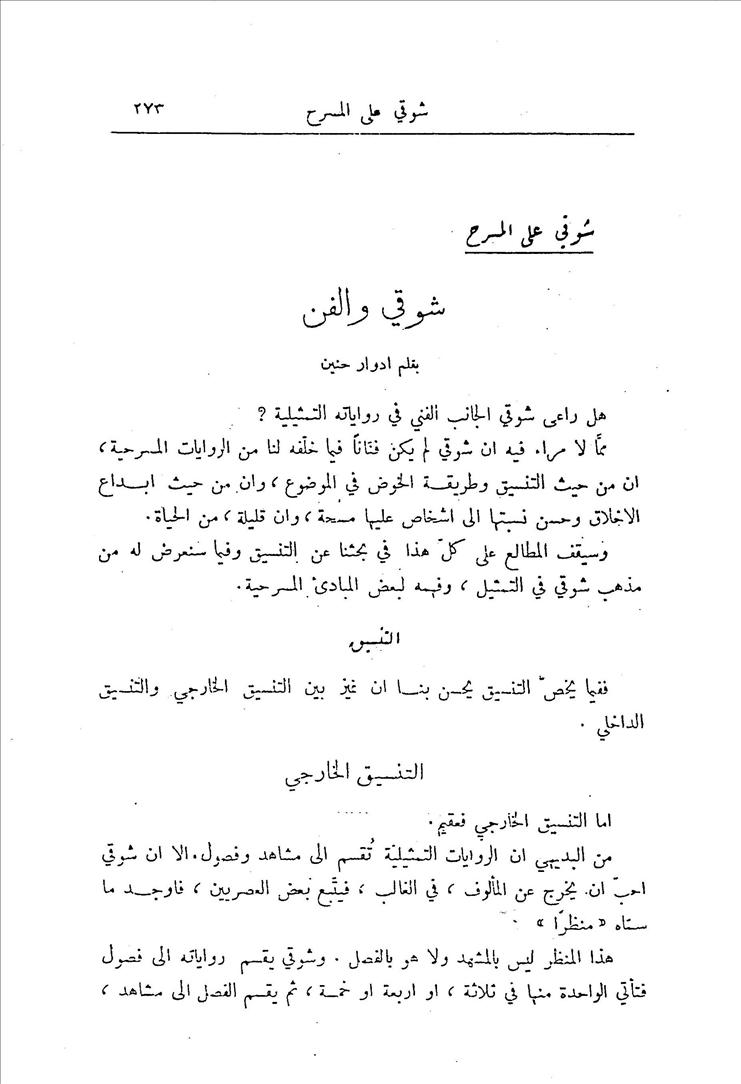 شوقي على المسرح ٢٧٣
شوقي على المسرح
شوقي والفن
بقلم ادوار حنين
هل راعى شوقي الجانب الفني في رواياته التمثيلية ؟
ممَّا لا مراء فيه ان شوقي لم يكن فنَّاناً فيما خلّفه لنا من الروايات المسرحية ،
ان من حيث التنسيق وطريقة الخوض في الموضوع ، وان من حيث ابداع
الاخلاق وحسن نسبتها الى اشخاص عليها مسحة ، وان قليلة ، من الحياة .
وسيقف المطالع على كلّ هذا في بحثنا عن التنسيق وفيما سنعرض له من
مذهب شوقي في التمثيل ، وفهمه لبعض المبادئ المسرحية .
التنسيق
ففيما يخصّ التنسيق يحسن بنا ان نميز بين التنسيق الخارجي والتنسيق
الداخلي .
التنسيق الخارجي
اما التنسيق الخارجي فعقيم .
من البديهي ان الروايات التمثيليّة تُقسم الى مشاهد وفصول . الا ان شوقي
احبّ ان يخرج عن المألوف ، في الغالب ، فيتَّبع بعض العصريين ، فاوجد ما
سمَّاه « منظرًا » .
هذا المنظر ليس بالمشهد ولا هو بالفصل . وشوقي يقسم رواياته الى فصول
فتأتي الواحدة منها في ثلاثة ، او اربعة او خمسة ، ثم يقسم الفصل الى مشاهد ،